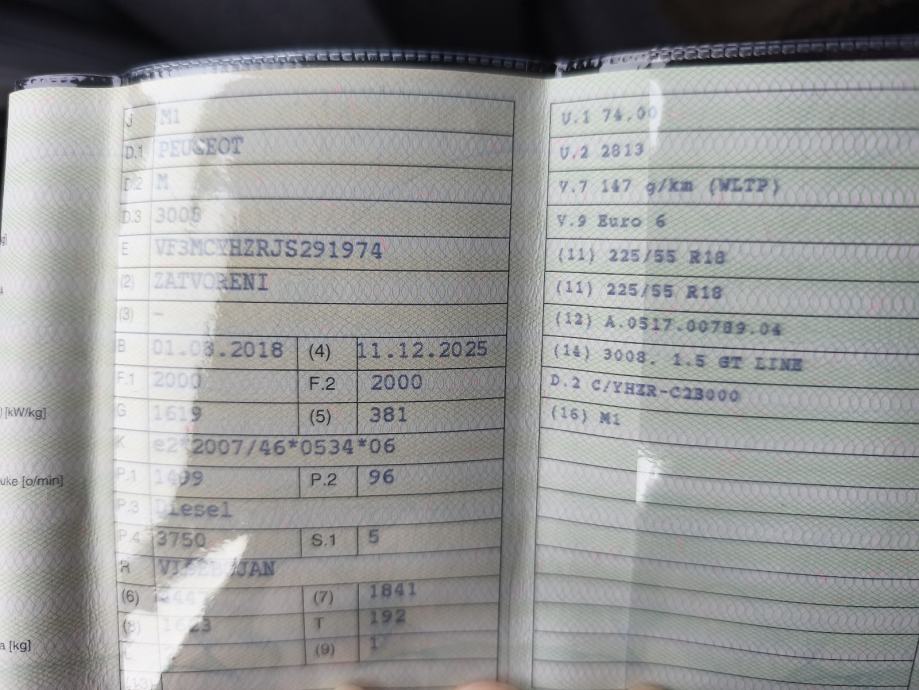 J M1
D.1 PEUGEOT
D.2 M
D.3 3008
E VF3MCYHZRJS291974
(2) ZATVORENI
(3) -
B 01.08.2018 (4) 11.12.2025
F.1 2000 F.2 2000
G 1619 (5) 381
K e2*2007/46*0534*06
P.1 1499 P.2 96
P.3 Diesel
P.4 3750 S.1 5
R
(6) (7) 1841
(8) T 192
L (9) 1
(13)
[kW/kg]
uke [o/min]
a [kg]
V.1 74.00
U.2 2813
V.7 147 g/km (WLTP)
V.9 Euro 6
(11) 225/55 R18
(11) 225/55 R18
(12) A.0517.00789.04
(14) 3008. 1.5 GT LINE
D.2 C/YHZR-C2B000
(16) M1